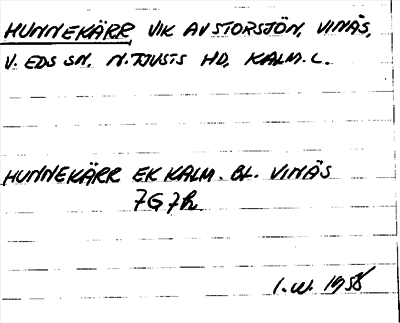 HUNNEKÄRR VIK AV STORSJÖN, VINÄS,
V. EDS SN. N. TJUSTS HD, KALM. L.
HUNNEKÄRR EK KALM. BL. VINÄS
7G7h
1958